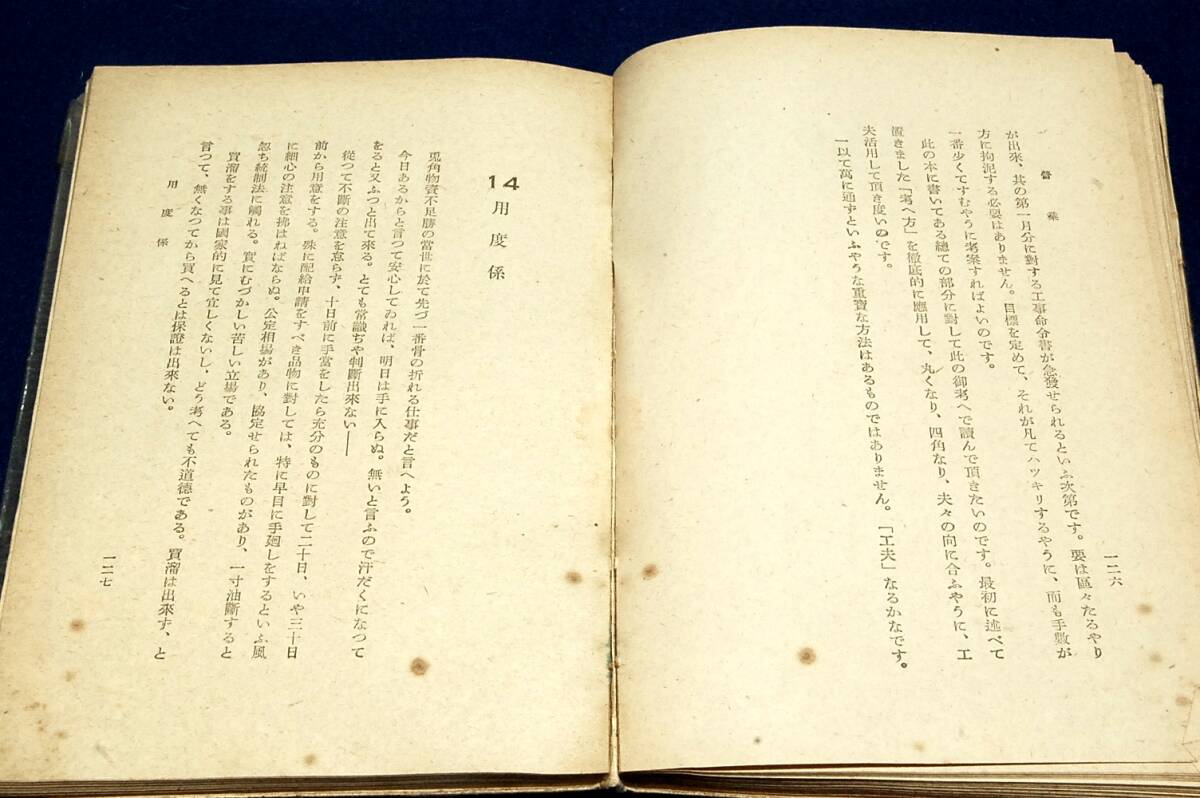 營業
一二六
が出來、其の第一月分に對する工事命令書が急發せられるといふ次第です。要は區々たるやり
方に拘泥する必要はありません。目標を定めて、それが凡てハツキリするやうに、而も手數が
一番少くてすむやうに考案すればよいのです。
此の本に書いてある總ての部分に對して此の御考へで讀んで頂きたいのです。最初に述べて
置きました「考へ方」を徹底的に應用して、丸くなり、四角なり、夫々の向に合ふやうに、工
夫活用して頂き度いのです。
一以て萬に通ずといふやうな重寶な方法はあるものではありません。「工夫」なるかなです。
14 用度係
兎角物資不足勝の當世に於て先づ一番骨の折れる仕事だと言へよう。
今日あるからと言つて安心してゐれば、明日は手に入らぬ。無いと言ふので汗だくになつて
をると又ふつと出て來る。とても常識ぢや判斷出來ない――
從つて不斷の注意を怠らず、十日前に手當をしたら充分のものに對して二十日、いや三十日
前から用意をする。殊に配給申請をすべき品物に對しては、特に早目に手廻しをするといふ風
に細心の注意を拂はねばならぬ。公定相場があり、協定せられたものがあり、一寸油斷すると
忽ち統制法に觸れる。實にむづかしい苦しい立場である。
買溜をする事は國家的に見て宜しくないし、どう考へても不道德である。買溜は出來ず、と
言つて、無くなつてから買へるとは保證は出來ない。
用度係
一二七